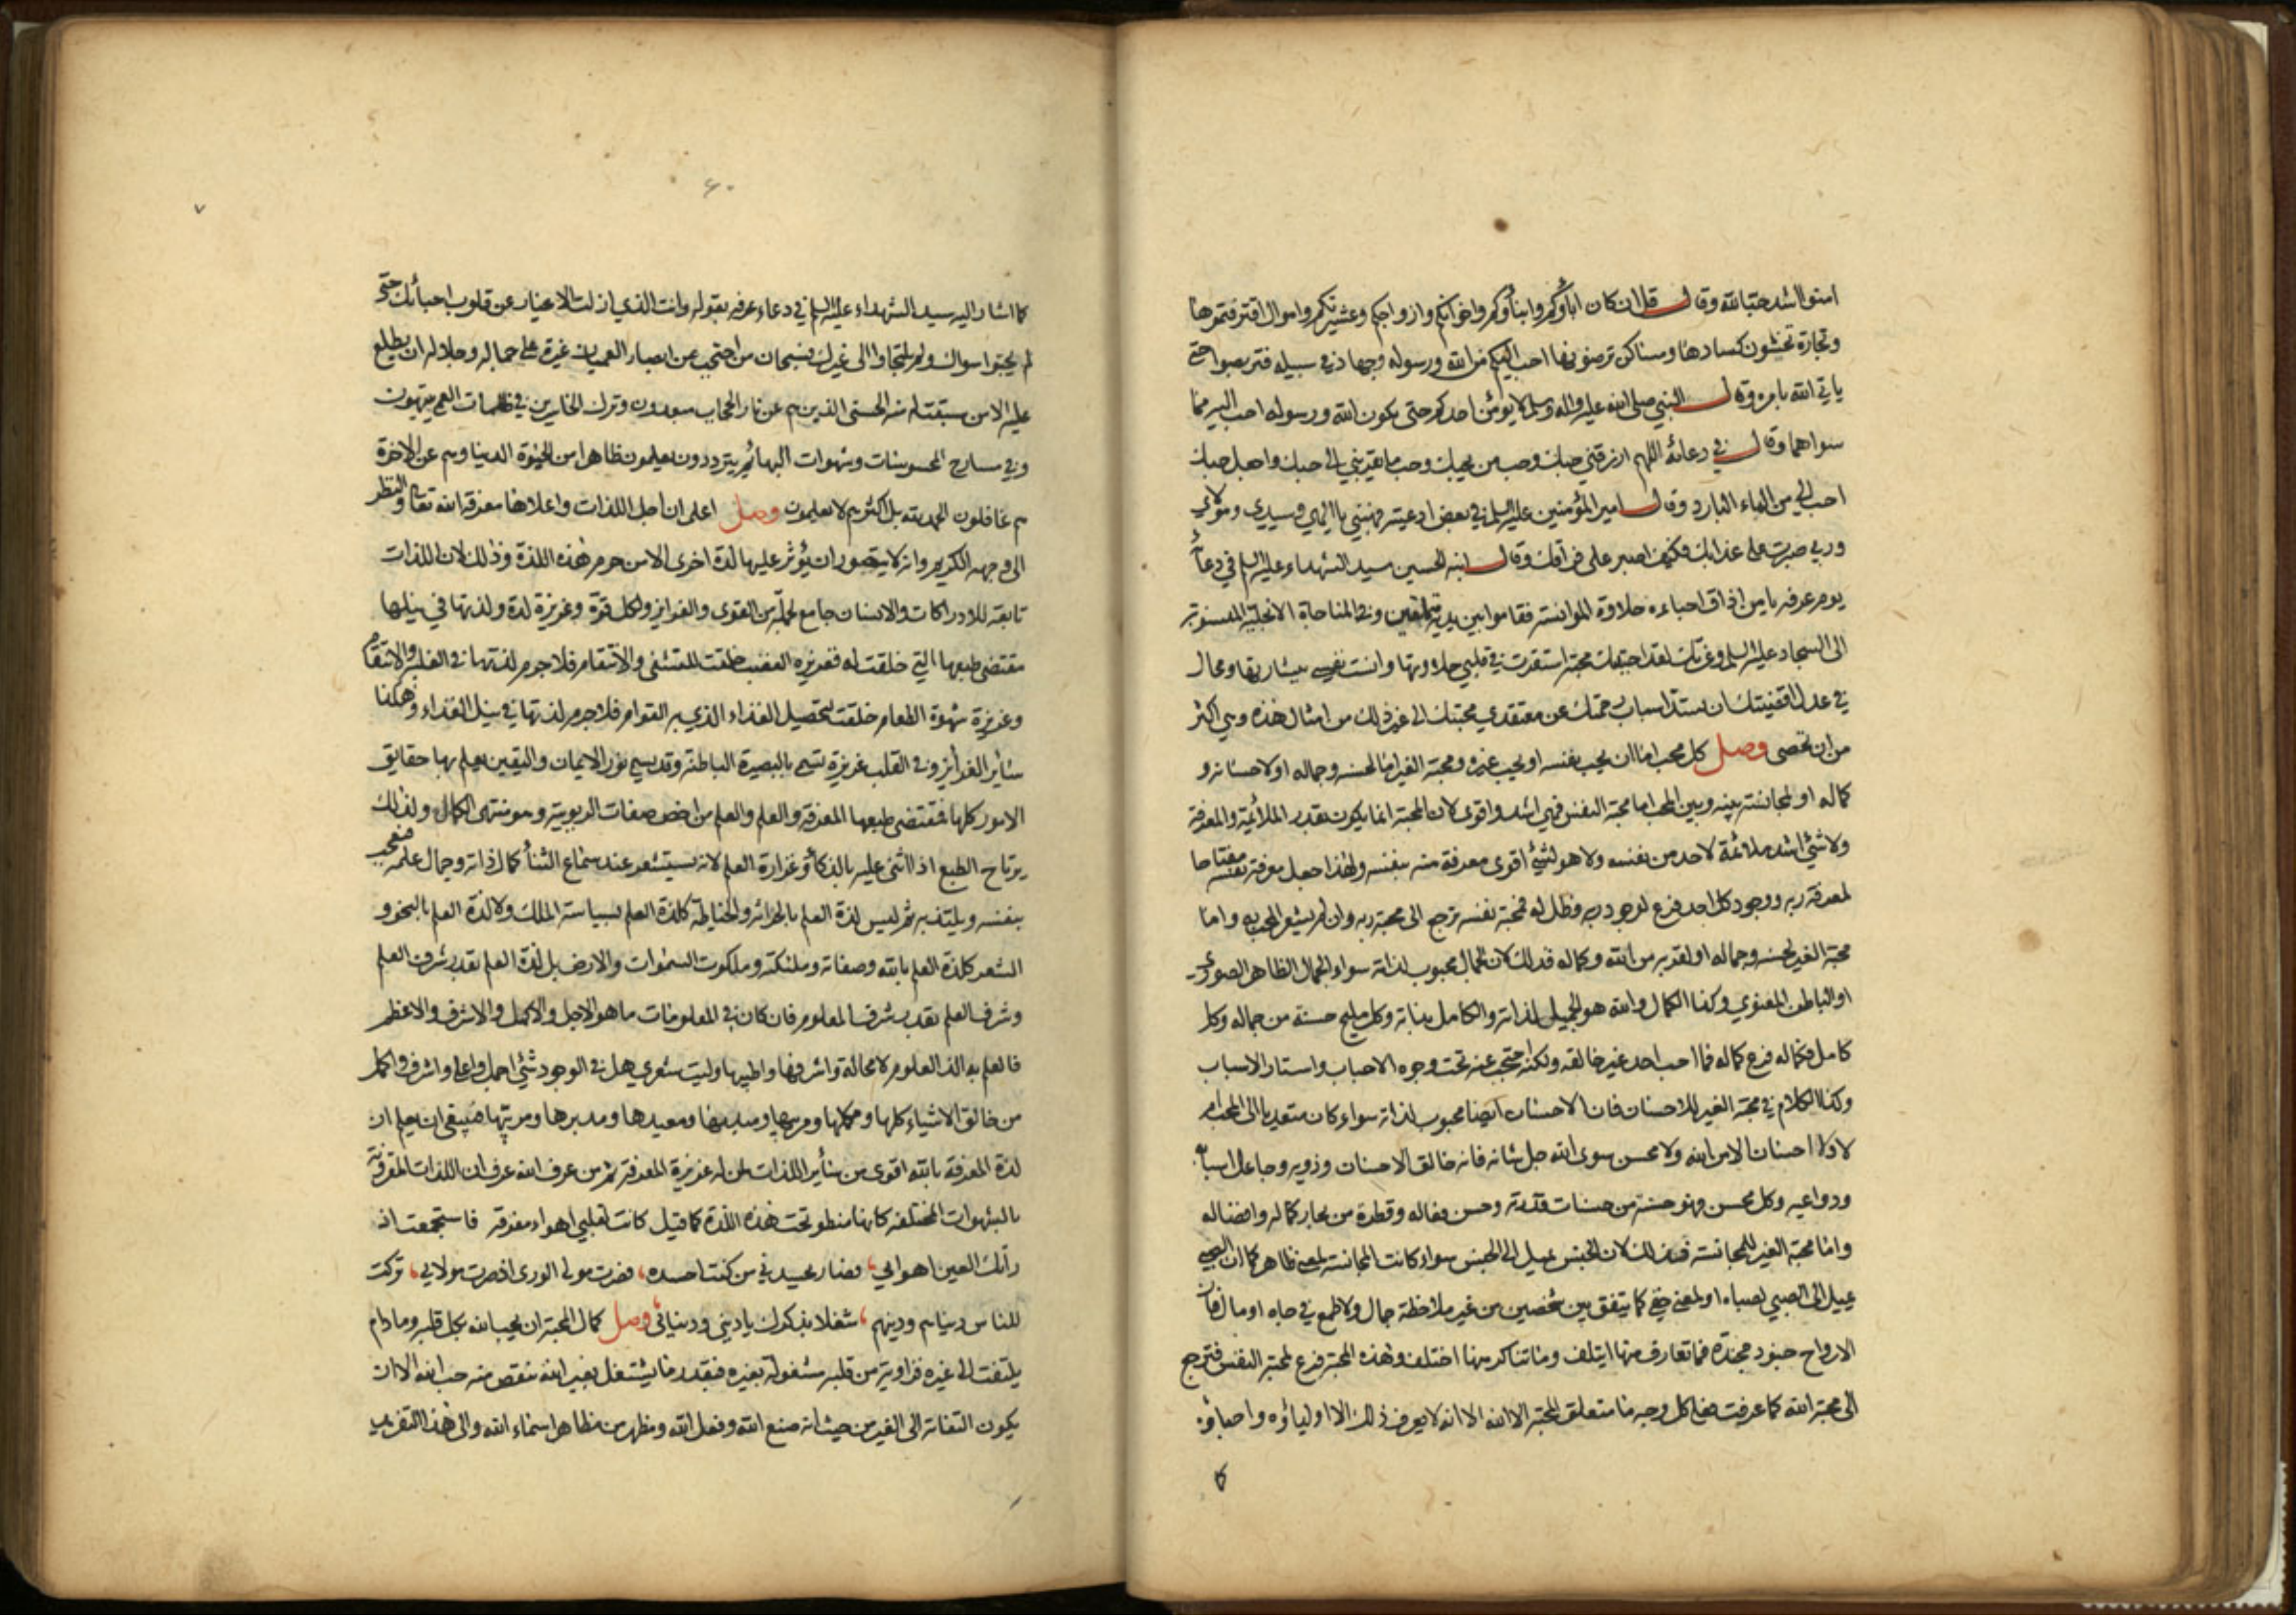 امنوا اشد حبا لله وقال قل ان كان اباؤكم وابناؤكم واخوانكم وازواجكم وعشيرتكم واموال اقترفتموها
وتجارة تخشون كسادها ومساكن ترضونها احب اليكم من الله ورسوله وجهاد في سبيله فتربصوا حتى
ياتي الله بامره وقال النبي صلى الله عليه واله وسلم لا يؤمن احدكم حتى يكون الله ورسوله احب اليه مما
سواهما وقال في دعائه اللهم ارزقني حبك وحب من يحبك وحب ما يقربني الى حبك واجعل حبك
احب الي من الماء البارد وقال امير المؤمنين عليه السلم في بعض ادعيته فهبني يا الهي وسيدي ومولاي
وربي صبرت على عذابك فكيف اصبر على فراقك وقال ابنه الحسين سيد الشهداء عليه السلم في دعاء
يوم عرفه يا من اذاق احباءه حلاوة الموانسة فقاموا بين يديه متملقين وفي المناجاة الانجلية المنسوبة
الى السجاد عليه السلم وعزتك لقد احببتك محبة استقرت في قلبي حلاوتها وانست نفسي ببشارتها ومحال
في عدل اقضيتك ان تسد اسباب رحمتك عن معتقدي محبتك الى غير ذلك من امثال هذه وهي اكثر
من ان تحصى وصل كل محب اما ان يحب نفسه او يحب غيره ومحبة الغير اما لحسنه وجماله او لاحسانه و
كماله او لمجانسة بينه وبين المحب اما محبة النفس فهي اشد واقوى لان المحبة انما يكون بقدر الملائمة والمعرفة
ولا شئ اشد ملائمة لاحد من نفسه ولا هو لشئ اقوى معرفة منه بنفسه ولهذا جعل معرفة نفسه مفتاحا
لمعرفة ربه ووجود كل احد فرع لوجود ربه وظل له فمحبة نفسه ترجع الى محبة ربه وان لم يشعر المحب به واما
محبة الغير لحسنه وجماله او لقربه من الله وكماله فذلك لان الجمال محبوب لذاته سواء الجمال الظاهر الصوري
او الباطن المعنوي وكذا الكمال والله هو الجميل لذاته والكامل بذاته وكل مليح حسنة من جماله وكل
كامل فكماله فرع كماله فما احب احد غير خالقه ولكنه احتجب عنه تحت وجوه الاحباب واستار الاسباب
وكذا الكلام في محبة الغير للاحسان فان الاحسان ايضا محبوب لذاته سواء كان متعديا الى المحب ام
لا ولا احسان الا من الله ولا محسن سوى الله جل شانه فانه خالق الاحسان وذويه وجاعل اسبابه
ودواعيه وكل محسن فهو حسنة من حسنات قدرته وحسن فعاله وقطرة من بحار كماله وافضاله
واما محبة الغير للمجانسة فذلك لان الجنس يميل الى الجنس سواء كانت المجانسة لمعنى ظاهر كما ان الصبي
يميل الى الصبي لصباه او لمعنى خفي كما يتفق بين شخصين من غير ملاحظة جمال ولا طمع في جاه او مال فان
الارواح جنود مجندة فما تعارف منها ايتلف وما تناكر منها اختلف وهذه المحبة فرع لمحبة النفس فترجع
الى محبة الله كما عرفت فعلى كل وجه ما متعلق المحبة الا الله الا انه لا يعرف ذلك الا اولياؤه واحباؤه
كما اشار اليه سيد الشهداء عليه السلم في دعاء عرفه بقوله وانت الذي ازلت الاغيار عن قلوب احبائك حتى
لم يحبوا سواك ولم يلتجاوا الى غيرك فسبحان من احتجب عن ابصار العميان غيرة على جماله وجلاله ان يطلع
عليه الا من سبقت لهم منه الحسنى الذين هم عن نار الحجاب مبعدون وترك الخاسرين في ظلمات العمى يتيهون
وفي مسارح المحسوسات وشهوات البهائم يترددون يعلمون ظاهرا من الحيوة الدنيا وهم عن الاخرة
هم غافلون الحمد لله بل اكثرهم لا يعلمون وصل اعلم ان اجل اللذات واعلاها معرفة الله تعالى والنظر
الى وجهه الكريم وانه لا يتصور ان يؤثر عليها لذة اخرى الا من حرم هذه اللذة وذلك لان اللذات
تابعة للادراكات والانسان جامع لجملة من القوى والغرايز ولكل قوة وغريزة لذة ولذتها في نيلها
مقتضى طبعها التي خلقت له فغريزه الغضب خلقت للتشفي والانتقام فلا جرم لذتها في الغلبة والانتقام
وغريزة شهوة الطعام خلقت لتحصيل الغذاء الذي به القوام فلا جرم لذتها في نيل الغذاء وهكذا
سائر الغرايز وفي القلب غريزة تسمى بالبصيرة الباطنة وقد يسمى نور الايمان واليقين يعلم بها حقايق
الامور كلها فمقتضى طبعها المعرفة والعلم والعلم من اخص صفات الربوبية وهو منتهى الكمال ولذلك
يرتاح الطبع اذا اثني عليه بالذكاء وغزارة العلم لانه يستشعر عند سماع الثناء كمال ذاته وجمال علمه فيعجب
بنفسه ويلتذ به ثم ليس لذة العلم بالحراثة والخياطة كلذة العلم بسياسة الملك ولا لذة العلم بالنحو و
الشعر كلذة العلم بالله وصفاته وملئكته وملكوت السموات والارض بل لذة العلم بقدر شرف العلم
وشرف العلم بقدر شرف المعلوم فان كان في المعلومات ما هو الاجل والاكمل والاشرف والاعظم
فالعلم به الذ العلوم لا محالة واشرفها واطيبها وليت شعري هل في الوجود شئ اجمل واعلى واشرف واكمل
من خالق الاشياء كلها ومكملها ومزينها ومبديها ومعيدها ومدبرها ومرتبها فينبغي ان يعلم ان
لذة المعرفة بالله اقوى من سائر اللذات لمن له غريزة المعرفة ثم من عرف الله عرف ان اللذات المقرونة
بالشهوات المختلفه كلها منطو تحت هذه اللذة كما قيل كانت لقلبي اهواء مفرقه فاستجمعت اذ
رأتك العين اهوائي فصار يحسدني من كنت احسده فصرت مولى الورى اذ صرت مولائي تركت
للناس دنياهم ودينهم شغلا بذكرك يا ديني ودنيائي وصل كمال المحبة ان يحب الله بكل قلبه وما دام
يلتفت الى غيره فزاوية من قلبه مشغولة بغيره فبقدر ما يشتغل بغير الله ينقص منه حب الله الا ان
يكون التفاته الى الغير من حيث انه صنع الله وفعل الله ومظهر من مظاهر اسماء الله والى هذا التفريد